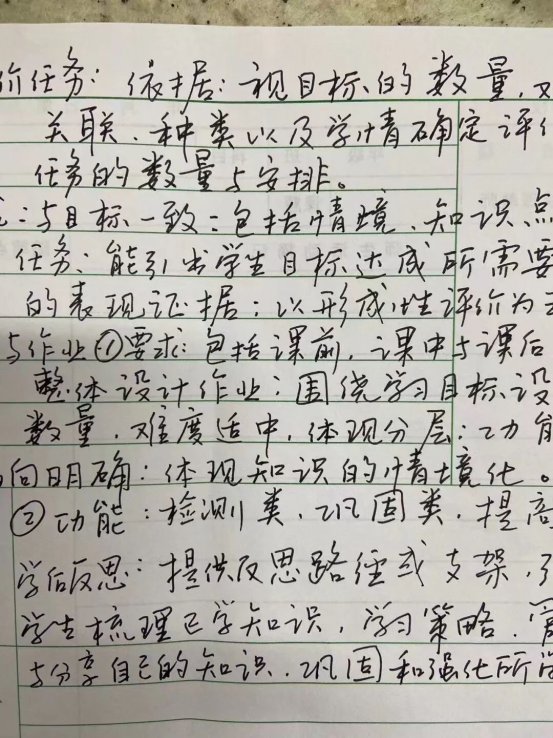 价任务：依据：视目标的数量、
关联、种类以及学情确定评
任务的数量与安排。
：与目标一致：包括情境、知识点
任务：能引出学生目标达成所需要
的表现证据：以形成性评价为
与作业①要求：包括课前、课中与课后
整体设计作业：围绕学习目标设
数量、难度适中，体现分层：功能
向明确：体现知识的情境化。
②功能：检测类、巩固类、提高
学后反思：提供反思路径或支架，
学生梳理已学知识、学习策略、
与分享自己的知识、巩固和强化所学